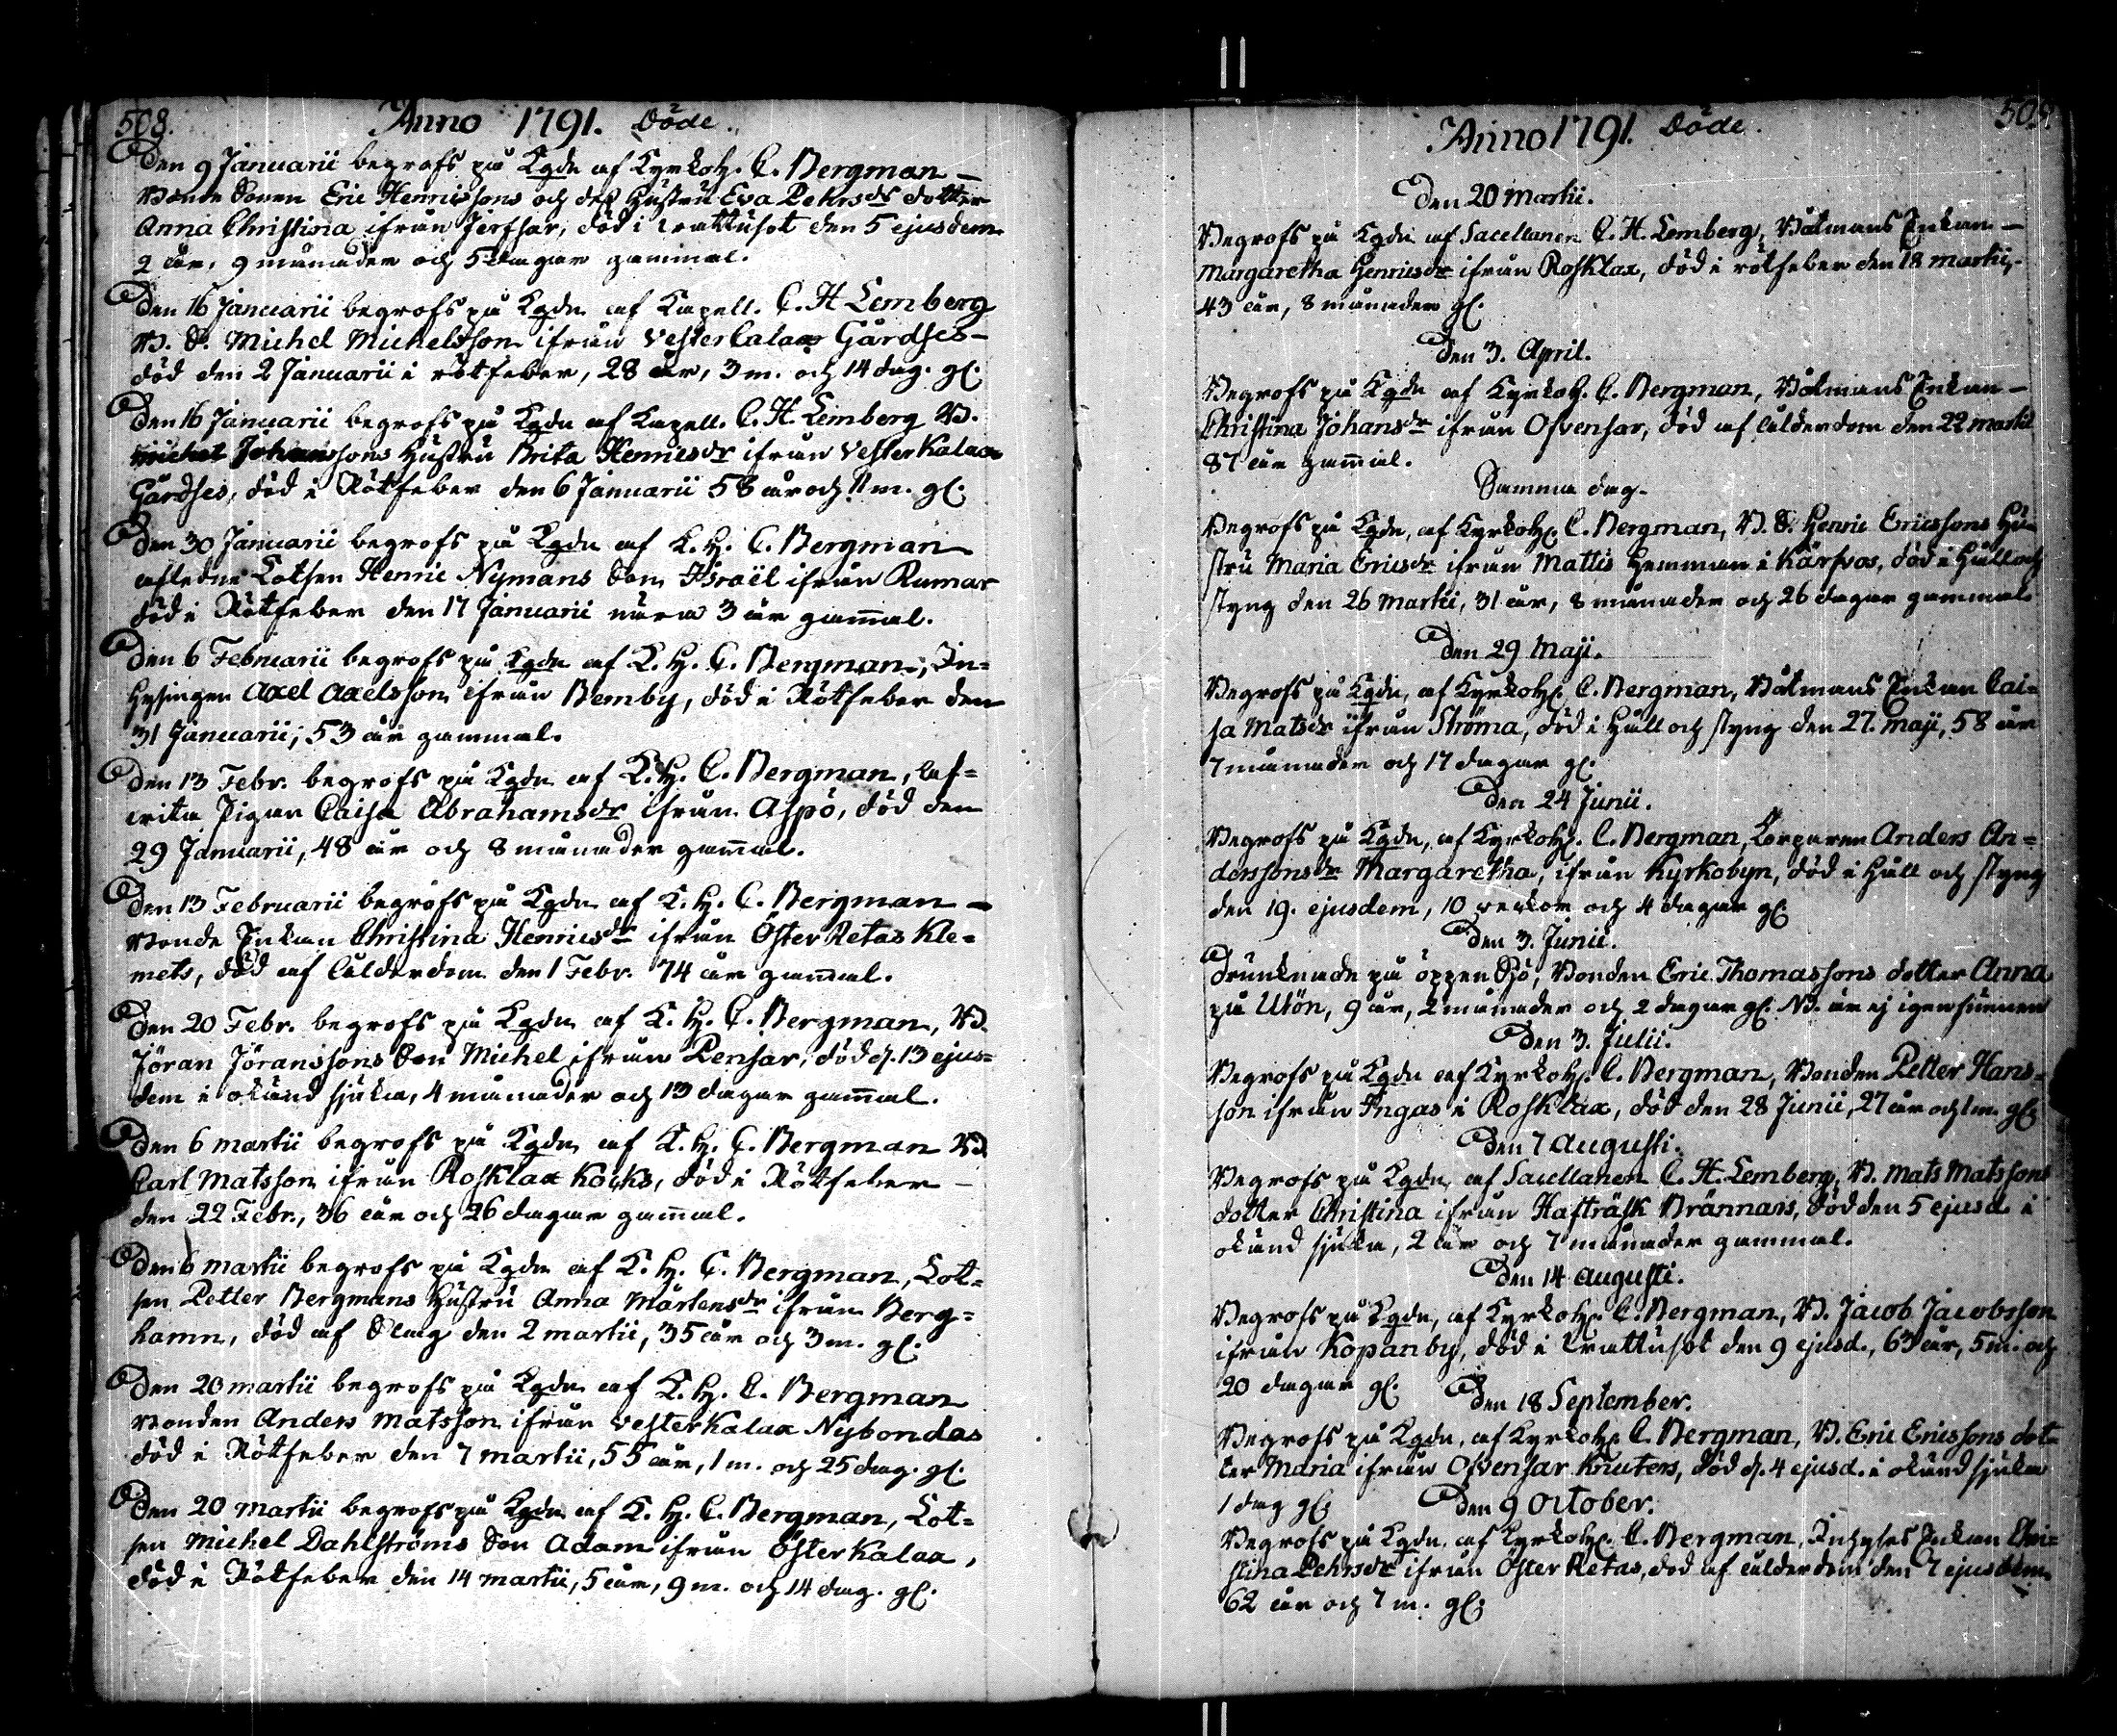 508.
Anno 1791. Döde.
Den 9 Januarii begrofs på Kgdn af Kyrkoh. C. Bergman –
Bonde Sonen Eric Henricssons och dess Hustru Eva Pehrsdr dotter
Anna Christina ifrån Jerfsar, död i brättusot den 5 ejusdem
2 år, 9 månader och 5 dagar gammal.
Den 16 Januarii begrofs på Kgdn af Kapell. C. H Lemberg
B. S. Michel Michelsson ifrån Vesterkalax Gårdses –
död den 2 Januarii i rötfeber, 28 år, 3 m. och 14 dag. gl.
Den 16 Januarii begrofs på Kgdn af Kapell. C. H. Lemberg B.
Michel Johanssons Hustru Brita Henricsdr ifrån Vesterkalax
Gårdses, död i Rötfeber den 6 Januarii 58 år och 11 m. gl.
Den 30 Januarii begrofs på Kgdn af K. H. C. Bergman
afledne Lotsen Henric Nymans Son Israël ifrån Rumar
död i Rötfeber den 17 Januarii nära 3 år gamal.
Den 6 Februarii begrofs på Kgdn af K. H. C. Bergman, In=
hysingen Axel Axelsson ifrån Bemby, död i Rötfeber den
31 Januarii, 53 år gammal.
Den 13 Febr. begrofs på Kgdn af K. H. C. Bergman,
Pigan Caisa Abrahamsdr ifrån Aspö, död den
29 Januarii, 48 år och 8 månader gamal.
Den 13 Februarii begrofs på Kgdn af K. H. C. Bergman –
Bonde Enkan Christina Henricsdr ifrån Öster Retas Kle=
mets, död af ålderdom den 1 Febr. 74 år gamal.
Den 20 Febr. begrofs på Kgdn af K. H. C. Bergman, B.
Jöran Jöranssons Son Michel ifrån Pensar, död d. 13 ejus=
dem i okänd sjuka, 4 månader och 13 dagar gamal.
Den 6 martii begrofs på Kgdn af K. H. C. Bergman B.
Carl Matsson ifrån Rosklax Kocks, död i Rötfeber –
den 22 Febr., 36 år och 26 dagar gamal.
Den 6 martii begrofs på Kgdn af K. H. C. Bergman, Lot=
sen Petter Bergmans Hustru Anna Mårtensdr ifrån Berg=
hamn, död af Slag den 2 martii, 35 år och 3 m. gl.
Den 20 martii begrofs på Kgdn af K. H. C. Bergman
Bonden Anders Matsson ifrån Vesterkalax Nybondas
död i Rötfeber den 7 martii, 55 år, 1 m. och 25 dag. gl.
Den 20 martii begrofs på Kgdn af K. H. C. Bergman, Lot=
sen Michel Dahlströms Son Adam ifrån Österkalax,
död i Rötfeber den 14 martii, 5 år, 9 m. och 14 dag. gl.
509.
Anno 1791. Döde.
Den 20 Martii.
Begrofs på Kgdn af Sacellanen C. H. Lemberg, Båtmans Enkan –
Margaretha Henricsdr ifrån Rosklax, död i rötfeber den 18 martii,
43 år, 8 månader gl.
Den 3. April.
Begrofs på Kgdn af Kyrkoh. C. Bergman, Båtmans Enkan –
Christina Johansdr ifrån Ofvensar, död af ålderdom den 22 martii
87 år gamal.
Samma dag.
Begrofs på Kgdn, af Kyrkoh. C. Bergman, B. S. Henric Ericssons Hu=
stru Maria Ericsdr ifrån Mattis hemman i Kärfvos, död i Håll och
styng den 26 Martii, 31 år, 8 månader och 26 dagar gammal.
Den 29 Maji.
Begrofs på Kgdn, af Kyrkoh. C. Bergman, Båtmans Enkan Cai=
sa Matsdr ifrån Ströma, död i Håll och styng den 27. Maji, 58 år
7 månader och 17 dagar gl.
Den 24 Junii.
Begrofs på Kgdn, af Kyrkoh. C. Bergman, Torparen Anders An=
derssons dr Margaretha, ifrån Kyrkobyn, död i Håll och styng
den 19. ejusdem, 10 veckor och 4 dagar gl.
Den 3. Junii.
Drunknade på öppen Sjö, Bonden Eric Thomassons dotter Anna
på Utön, 9 år, 2 månader och 2 dagar gl. NB. är ej igenfunnen
Den 3. Julii.
Begrofs på Kgdn af Kyrkoh. C. Bergman, Bonden Petter Hans=
son ifrån Ingas i Rosklax, död den 28 Junii, 27 år och 1 m. gl.
Den 7 Augusti.
Begrofs på Kgdn, af Sacellanen C. H. Lemberg, B. Mats Matssons
dotter Christina ifrån Hafträsk Brännars, död den 5 ejusd. i
okänd sjuka, 2 år och 7 månader gammal.
Den 14 Augusti.
Begrofs på Kgdn, af Kyrkoh. C. Bergman, B. Jacob Jacobsson
ifrån Kopanby, död i brättusot den 9 ejusd., 63 år, 5 m. och
20 dagar gl.
Den 18 September.
Begrofs på Kgdn, af Kyrkoh. C. Bergman, B. Eric Ericssons dot=
ter Maria ifrån Ofvensar Knuters, död d. 4 ejusd. i okänd sjuka
1 dag gl.
Den 9 October.
Begrofs på Kgdn, af Kyrkoh. C. Bergman, Inhyses Enkan Chri=
stina Pehrsdr ifrån Öster Retas, död af ålderdom den 7 ejusdem
62 år och 7 m. gl.